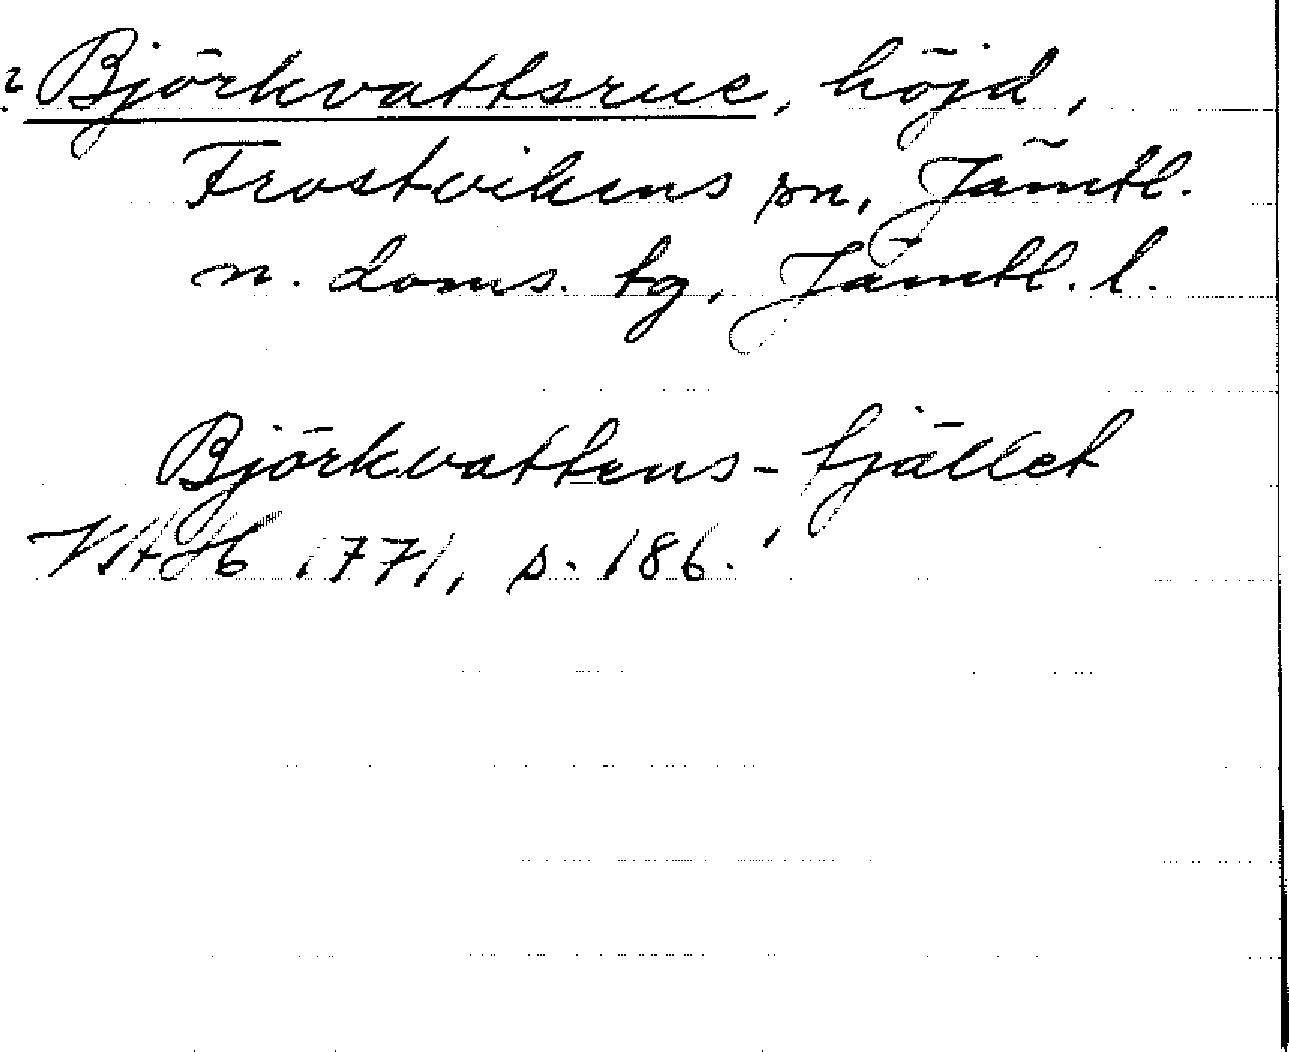 ? Björkvattsrue, höjd,
Frostvikens sn, Jämtl.
n. doms. tg, Jämtl. l.
Björkvattens-fjället
VAH 1771, s. 186.